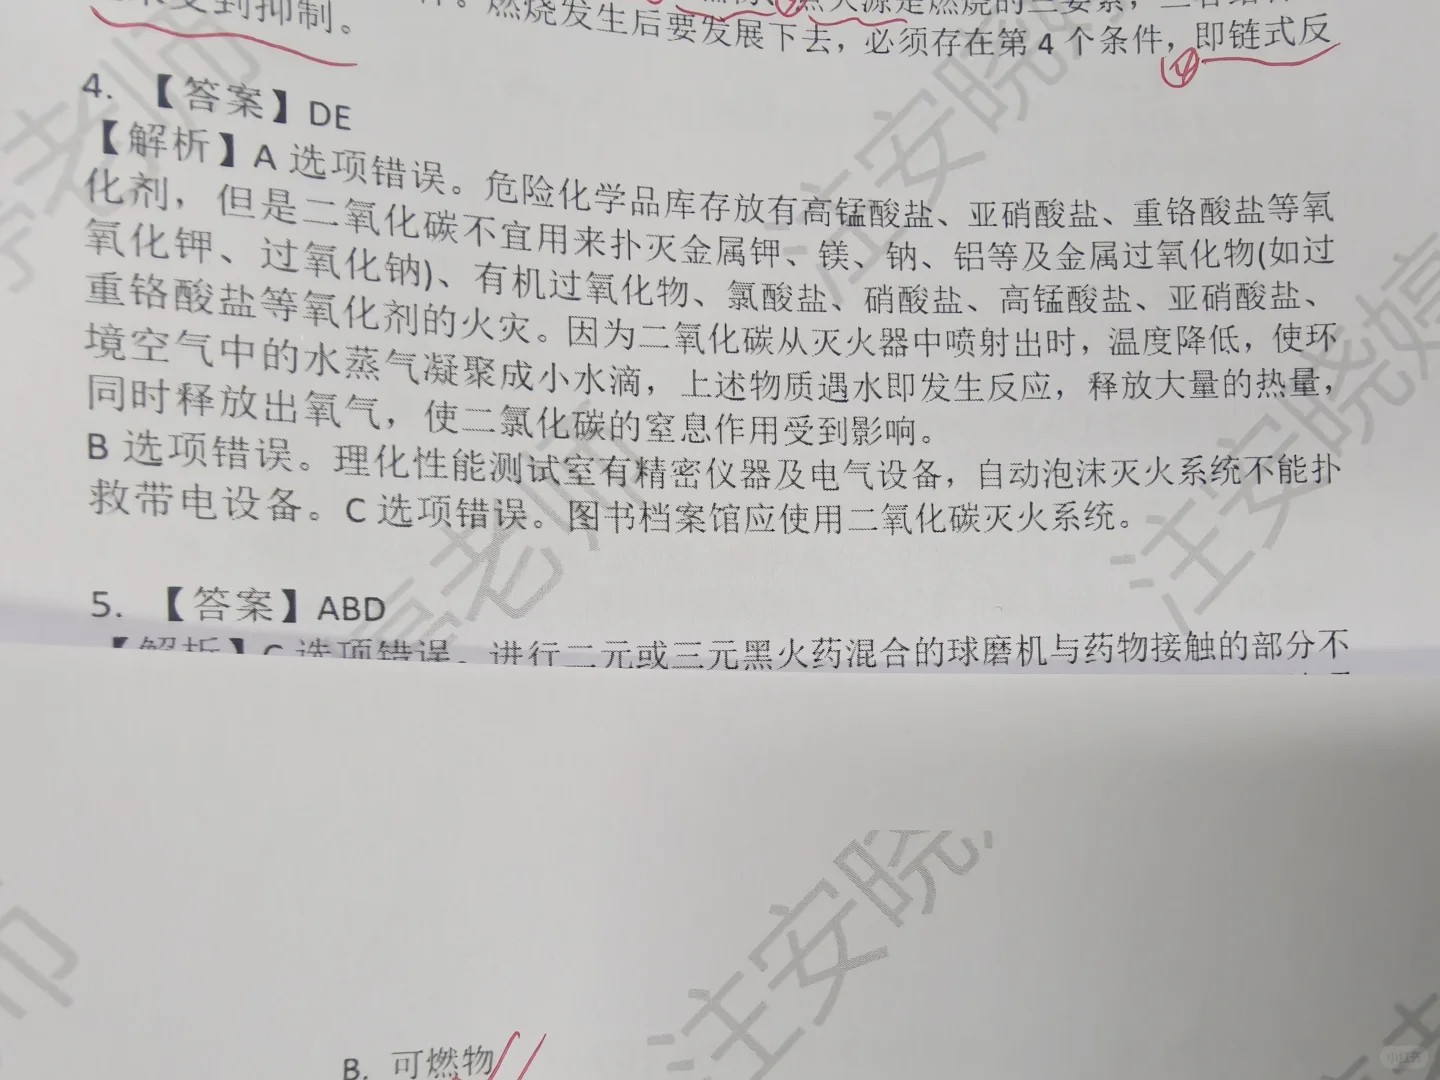 受到抑制。
燃烧发生后要发展下去，必须存在第 4 个条件，即链式反
④
4. 【答案】DE
【解析】A 选项错误。危险化学品库存放有高锰酸盐、亚硝酸盐、重铬酸盐等氧
化剂，但是二氧化碳不宜用来扑灭金属钾、镁、钠、铝等及金属过氧化物(如过
氧化钾、过氧化钠)、有机过氧化物、氯酸盐、硝酸盐、高锰酸盐、亚硝酸盐、
重铬酸盐等氧化剂的火灾。因为二氧化碳从灭火器中喷射出时，温度降低，使环
境空气中的水蒸气凝聚成小水滴，上述物质遇水即发生反应，释放大量的热量，
同时释放出氧气，使二氯化碳的窒息作用受到影响。
B 选项错误。理化性能测试室有精密仪器及电气设备，自动泡沫灭火系统不能扑
救带电设备。C 选项错误。图书档案馆应使用二氧化碳灭火系统。
5. 【答案】ABD
【解析】C 选项错误。进行二元或三元黑火药混合的球磨机与药物接触的部分不
B. 可燃物
注安晓婷老师
小红书